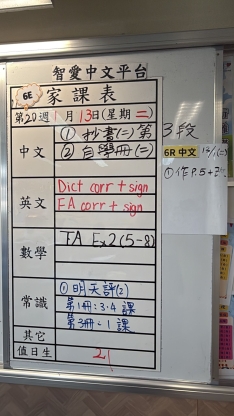 智愛中文平台
6E 家課表
第20週 1月13日(星期二)
中文
① 抄書(二)第3段
② 自學冊(二)
英文
Dict corr + sign
FA corr + sign
數學
FA Ex2 (5-8)
常識
① 明天評(2)
第1冊:3.4課
第3冊:1課
其它
值日生
21
6R 中文
① 作 P.5 +